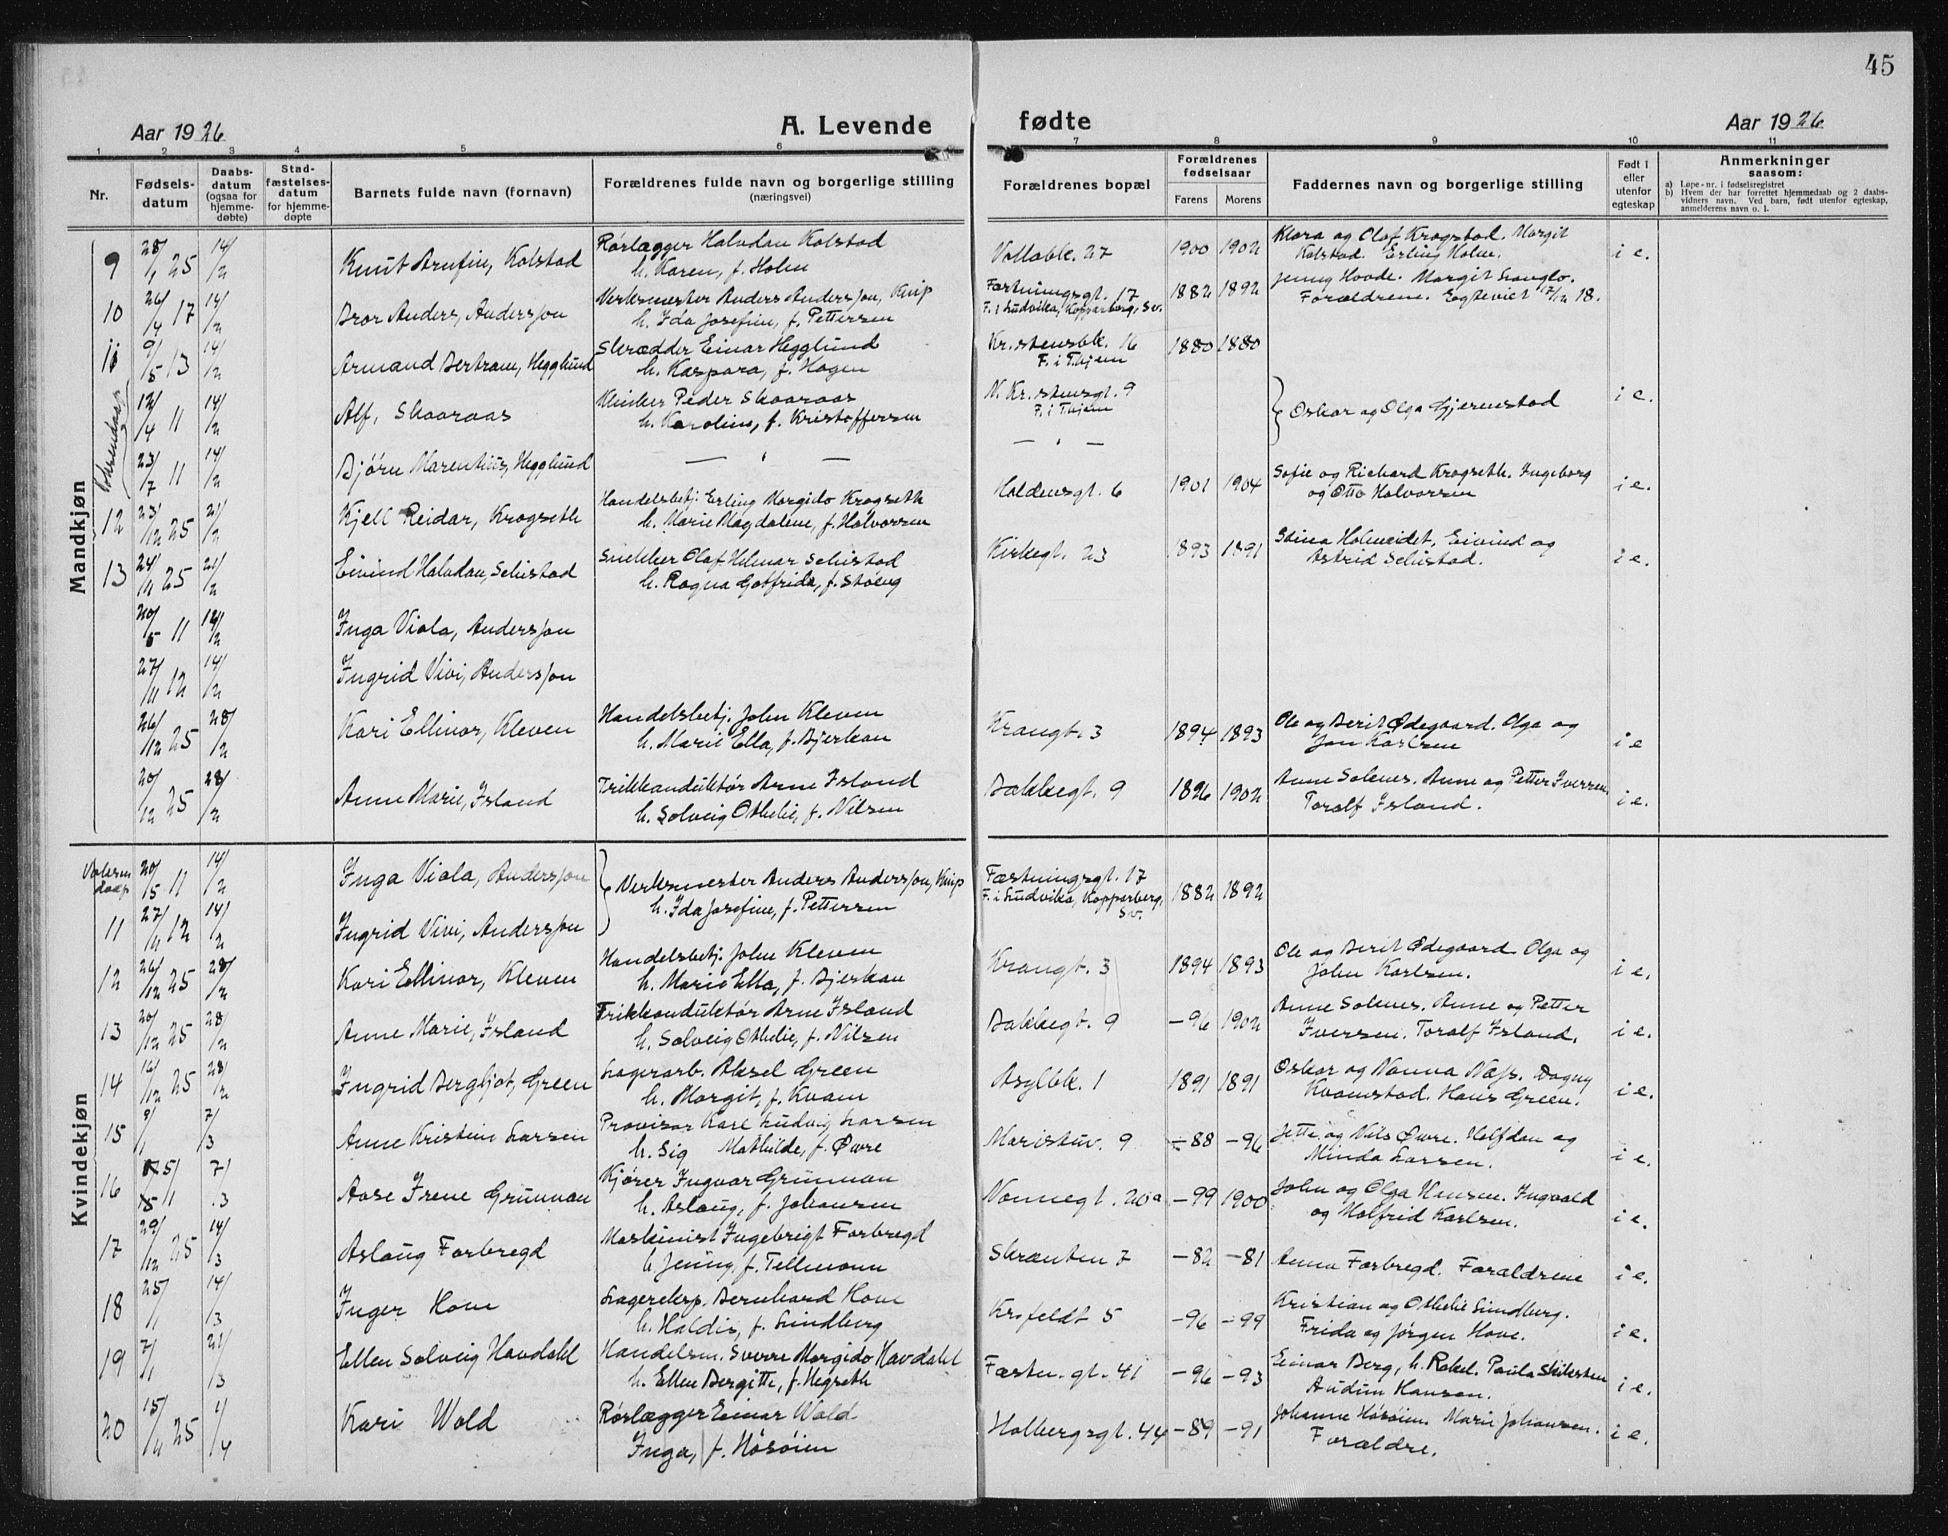 45
Aar 1926
A. Levende
fødte
Aar 1926
1 2 3 4 5 6 7 8 9 10 11
Nr.
Fødsels-
datum
Daabs-
datum
(ogsaa for
hjemme-
døbte)
Stad-
fæstelses-
datum
for hjemme-
døpte
Barnets fulde navn (fornavn)
Forældrenes fulde navn og borgerlige stilling
(næringsvei)
Forældrenes bopæl
Forældrenes
fødselsaar
Farens Morens
Faddernes navn og borgerlige stilling
Født i
eller
utenfor
egteskap
Anmerkninger
saasom:
a) Løpe-nr. i fødselsregistret
b) Hvem der har forrettet hjemmedaab og 2 daabs-
vidners navn. Ved barn, født utenfor egteskap,
anmelderens navn o. l.
Mandkjøn
9 28/1 25 14/2 Knut Arnfin, Kolstad Rørlægger Halvdan Kolstad
h. Karen, f. Holm
Vollabk. 27 1900 1902 Klara og Olaf Krogstad. Margit
Kolstad. Erling Holm. i e.
10 26/4 17 14/2 Bror Anders, Andersson Verksmester Anders Andersson, Knip
h. Ida Josefin, f. Pettersen
Fæstningsgt. 17
F. i Ludvika, Kopparberg, Sv.
1882 1892 Jenny Hoode. Margit
Forældrene. Egteviet 17/12 18.
11 9/5 13 14/2 Armand Bertram, Hegglund Skrædder Einar Hegglund
h. Kaspara, f. Hagen
Kr.stensbk. 16
F. i Thjem
1880 1880
12/4 11 14/2 Alf, Skaaraas Klinker Peder Skaaraas
h. Karoline, f. Kristoffersen
N. Kr.stensgt. 9
F. i Thjem
Oskar og Olga Gjerenstad i e.
Voksendaap
23/7 11 14/2 Bjørn Marentius, Hegglund — " —
— " —
12 23/12 25 21/2 Kjell Reidar, Krogseth Handelsbetj. Erling Margido Krogseth
h. Marie Magdalene, f. Halvorsen
Haldensgt. 6 1901 1904 Sofie og Richard Krogseth. Ingeborg
og Otto Halvorsen i e.
13 24/11 25 21/2 Eivind Halvdan, Schistad Snekker Olaf Hilmar Schistad
h. Ragna Gotfrida, f. Støeng
Kirkegt. 23 1893 1891 Stina Holmeidet, Eivind og
Astrid Schistad. i e.
20/5 11 14/2 Inga Viola, Andersson
27/11 12 14/2 Ingrid Vivi, Andersson
26/12 25 28/2 Kari Ellinor, Kleven Handelsbetj. John Kleven
h. Marie Ella, f. Bjerkan
Krangt. 3 1894 1893 Ole og Berit Ødegaard. Olga og
Jon Karlsen i e
20/12 25 28/2 Anne Marie, Island Trikkonduktør Arne Island
h. Solveig Othelie, f. Nilsen
Bakkegt. 9 1896 1902 Anne Solenes. Anne og Petter Iversen.
Toralf Island. i e.
Kvindekjøn
Voksen
daap
20/5 11 14/2 Inga Viola, Andersson Verksmester Anders Andersson, Knip
h. Ida Josefine, f. Pettersen
Fæstningsgt. 17
F. i Ludvika, Kopparberg,
Sv.
1882 1892
11 27/11 12 14/2 Ingrid Vivi, Andersson
12 26/12 25 28/2 Kari Ellinor, Kleven Handelsbetj. John Kleven
h. Marie Ella, f. Bjerkan
Krangt. 3 1894 1893 Ole og Berit Ødegaard. Olga og
John Karlsen. i e.
13 20/12 25 28/2 Anne Marie, Island Trikkonduktør Arne Island
h. Solveig Othelie, f. Nilsen
Bakkegt. 9 –96 1902 Anne Solenes. Anne og Petter
Iversen. Toralf Island. i e.
14 12/12 25 28/2 Ingrid Bergljot, Green Lagerarb. Aksel Green
h. Margit, f. Kvam
Asylbk. 1 1891 1891 Oskar og Nanna Næss. Dagny
Kvamstad. Hans Green. i e.
15 9/1 7/3 Anne Kristine Larsen Provisor Karl Ludvig Larsen
h. Sig Mathilde, f. Øwre
Maristuv. 9 –88 –96 Jette og Nils Øwre. Halfdan og
Minda Larsen. i e.
16 7/3 Aase Irene Grünnan Kjører Ingvar Grünnan
h. Aslaug, f. Johansen
Nonnegt. 20a –99 1900 John og Olga Hansen. Ingvald
og Halfrid Karlsen. i e.
17 29/12 25 14/3 Aslaug Forbregd Maskinist Ingebrigt Forbregd
h. Jenny, f. Tellmann
Skrænten 7 –82 –81 Anna Forbregd. Forældrene i e.
18 25/1 14/3 Inger Hove Lagereksp. Bernhard Hove
h. Haldis, f. Lundberg
Krsfeldt 5 –96 –99 Kristian og Othelie Lundberg.
Frida og Jørgen Hove. i e.
19 7/1 21/3 Ellen Solveig Havdahl Handelsm. Sverre Margido Havdahl
h. Ellen Bergitte, f. Hegseth
Fæstn.gt. 41 –96 –93 Einar Berg, h. Rakel. Paula
Audun Hansen. i e.
20 15/11 25 1/4 Kari Wold Rørlægger Einar Wold
Inga, f. Høsøien
Holbergsgt. 44 –89 –91 Johanne Høsøien. Marie Johansen.
Forældre. i e.